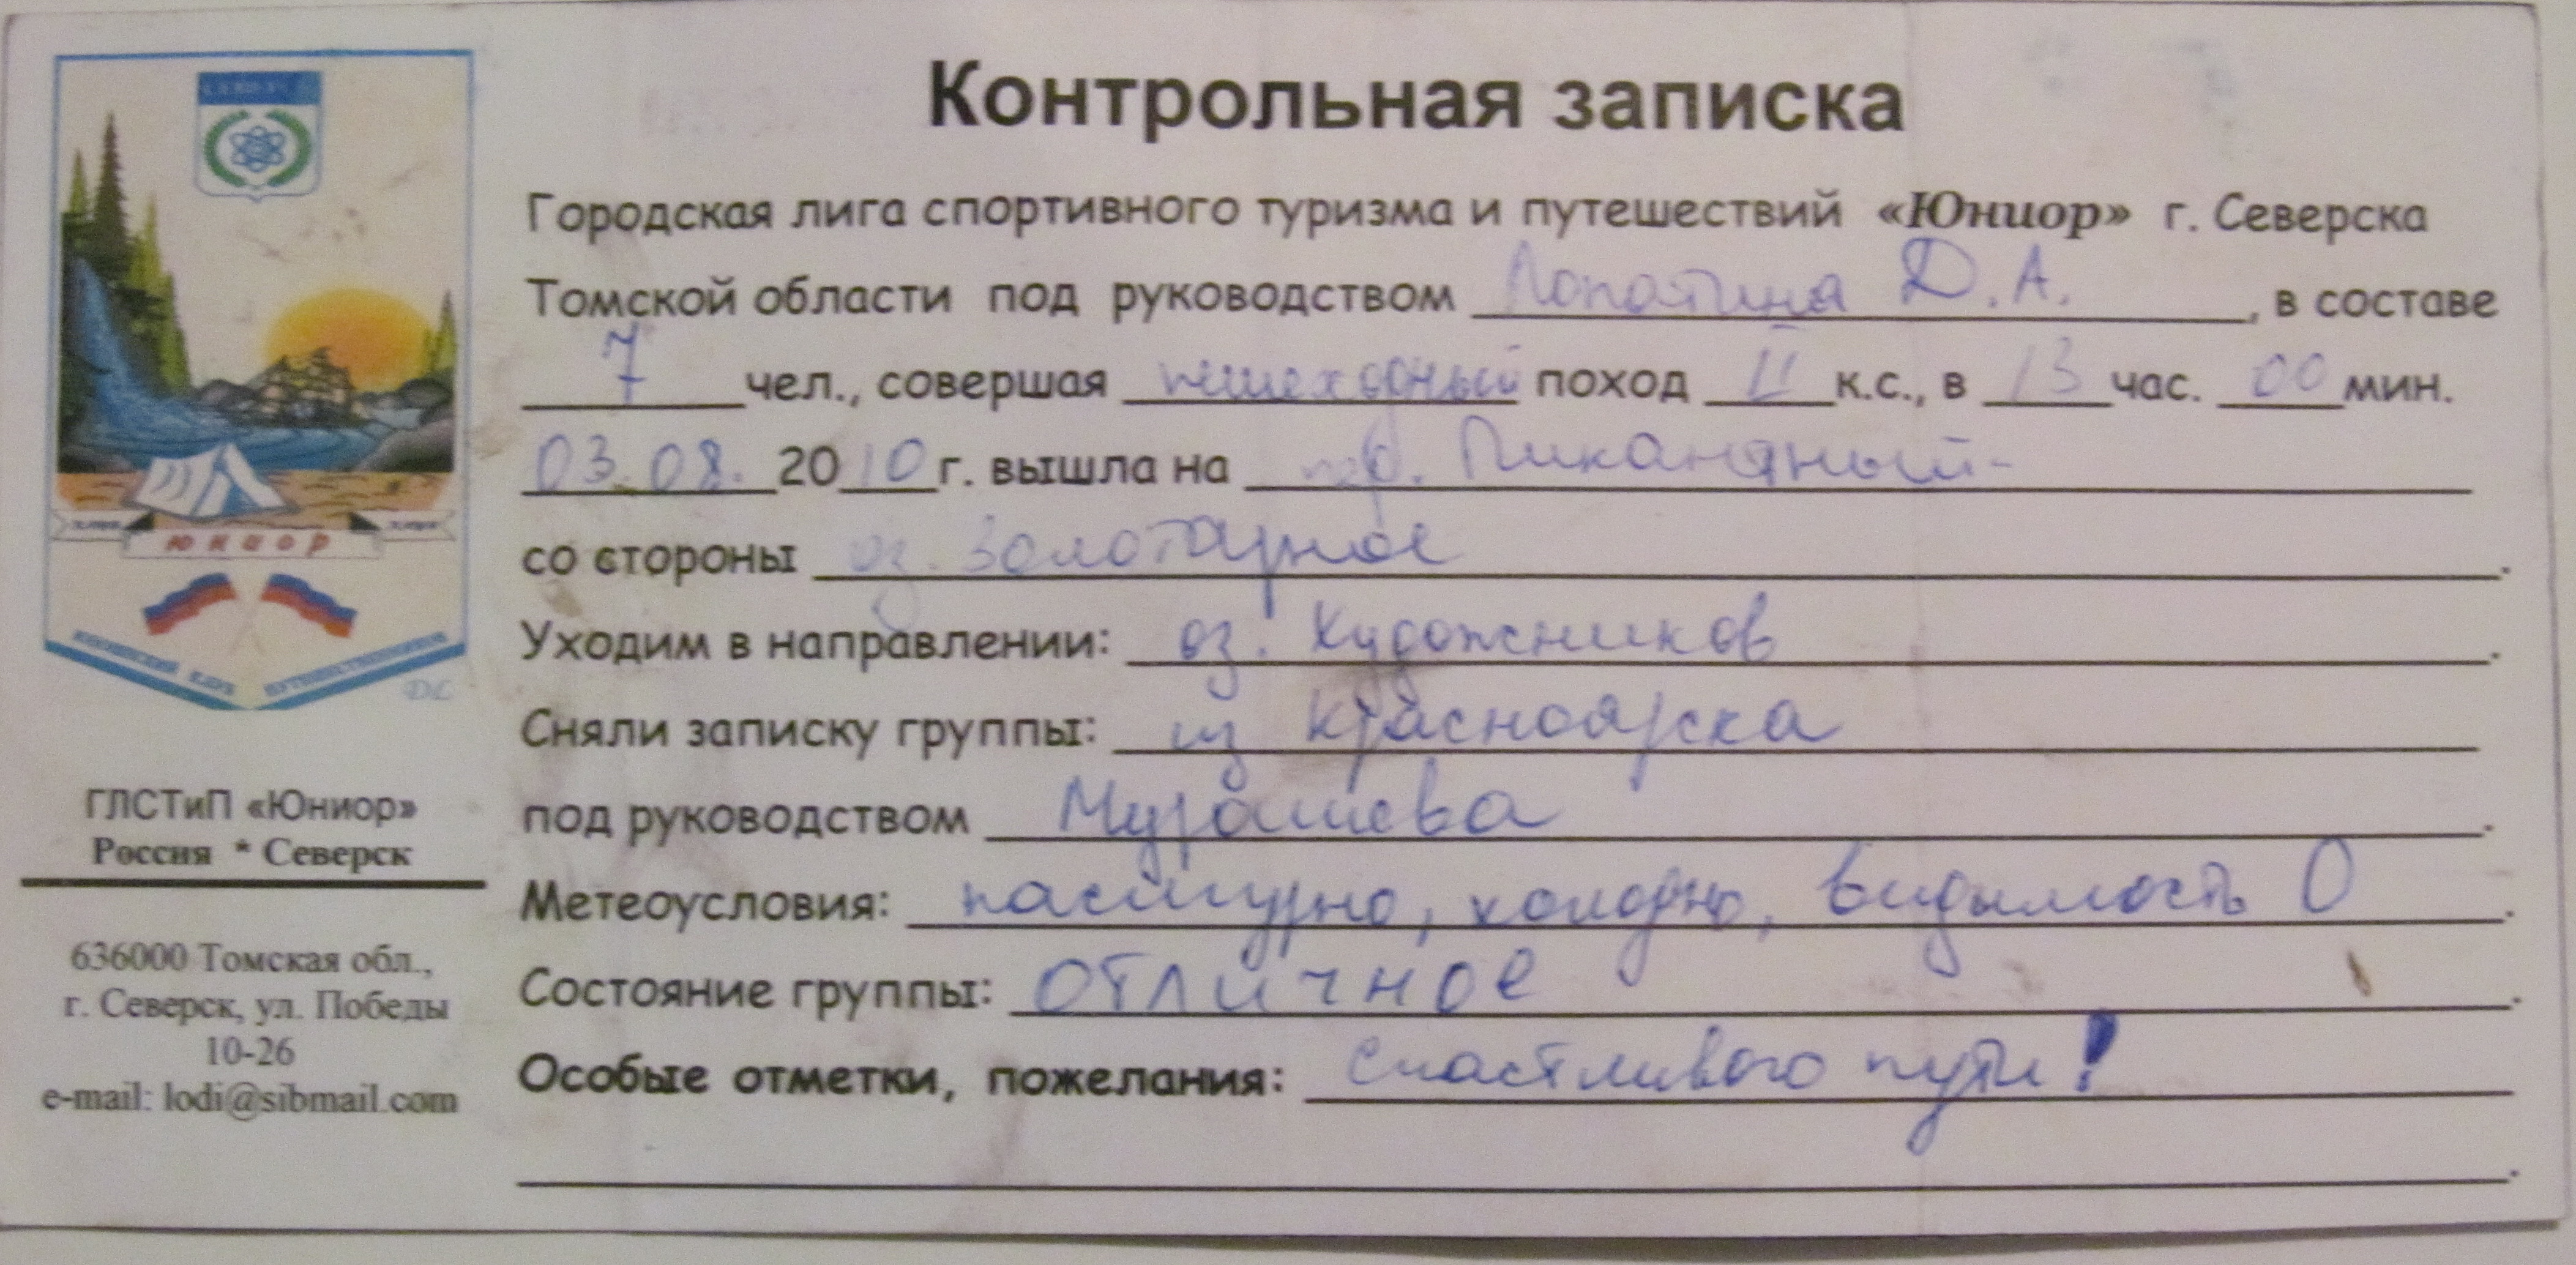 Контрольная записка
Городская лига спортивного туризма и путешествий «Юниор» г. Северска
Томской области под руководством Лопатина Д.А., в составе
7 чел., совершая пешеходный поход II к.с., в 13 час. 00 мин.
03.08. 2010 г. вышла на пер. Пикантный-
со стороны оз. Золотарное.
Уходим в направлении: оз. Художников.
Сняли записку группы: из Красноярска
под руководством Мурашева.
Метеоусловия: пасмурно, холодно, видимость 0.
Состояние группы: отличное.
Особые отметки, пожелания: Счастливого пути!
юниор
ЮНОШЕСКИЙ КЛУБ ПУТЕШЕСТВЕННИКОВ
ГЛСТиП «Юниор»
Россия * Северск
636000 Томская обл.,
г. Северск, ул. Победы
10-26
e-mail: lodi@sibmail.com